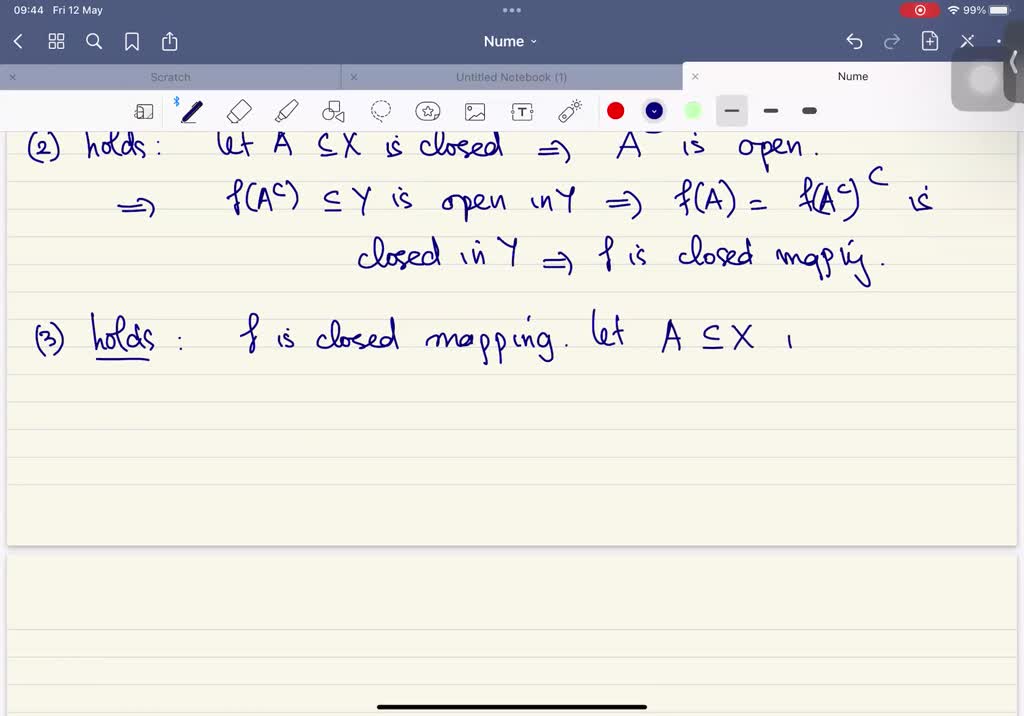 09:44 Fri 12 May
99%
Nume
Scratch
Untitled Notebook (1)
Nume
T
(2) holds: let A ⊆ X is closed ⇒ A is open.
⇒ f(Aᶜ) ⊆ Y is open in Y ⇒ f(A) = f(Aᶜ)ᶜ is
closed in Y ⇒ f is closed mappig.
(3) holds : f is closed mapping. let A ⊆ X ,